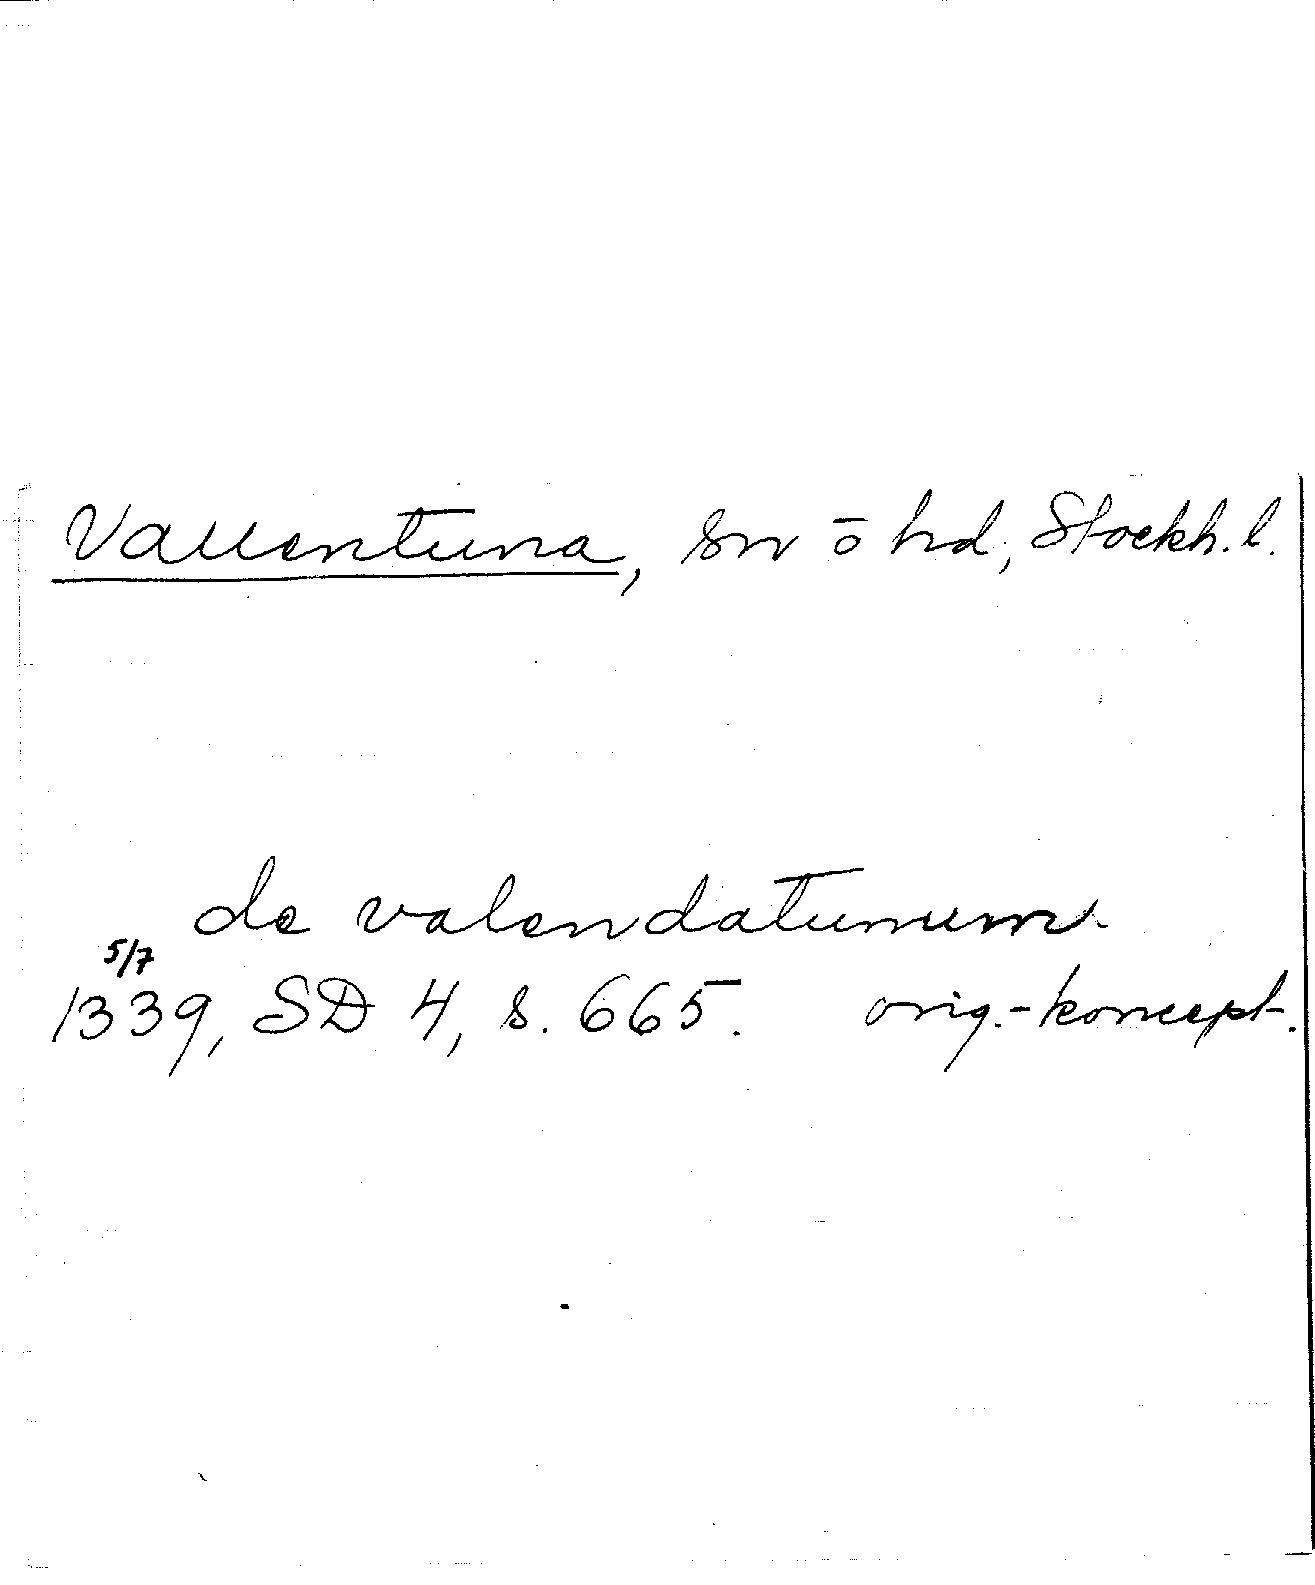 Vallentuna, sn ō hd, Stockh. l.
de valendatunum
5/7
1339, SD 4, s. 665. orig.-koncept.